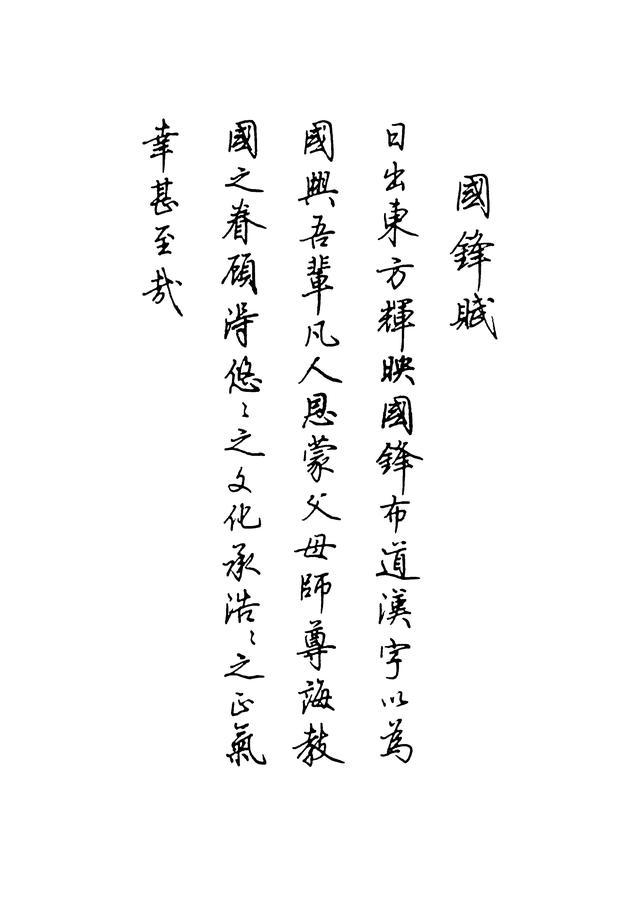 國鋒賦
日出東方輝映國鋒布道漢字以為
國興吾輩凡人恩蒙父母師尊誨教
國之眷顧得悠〻之文化承浩〻之正氣
幸甚至哉